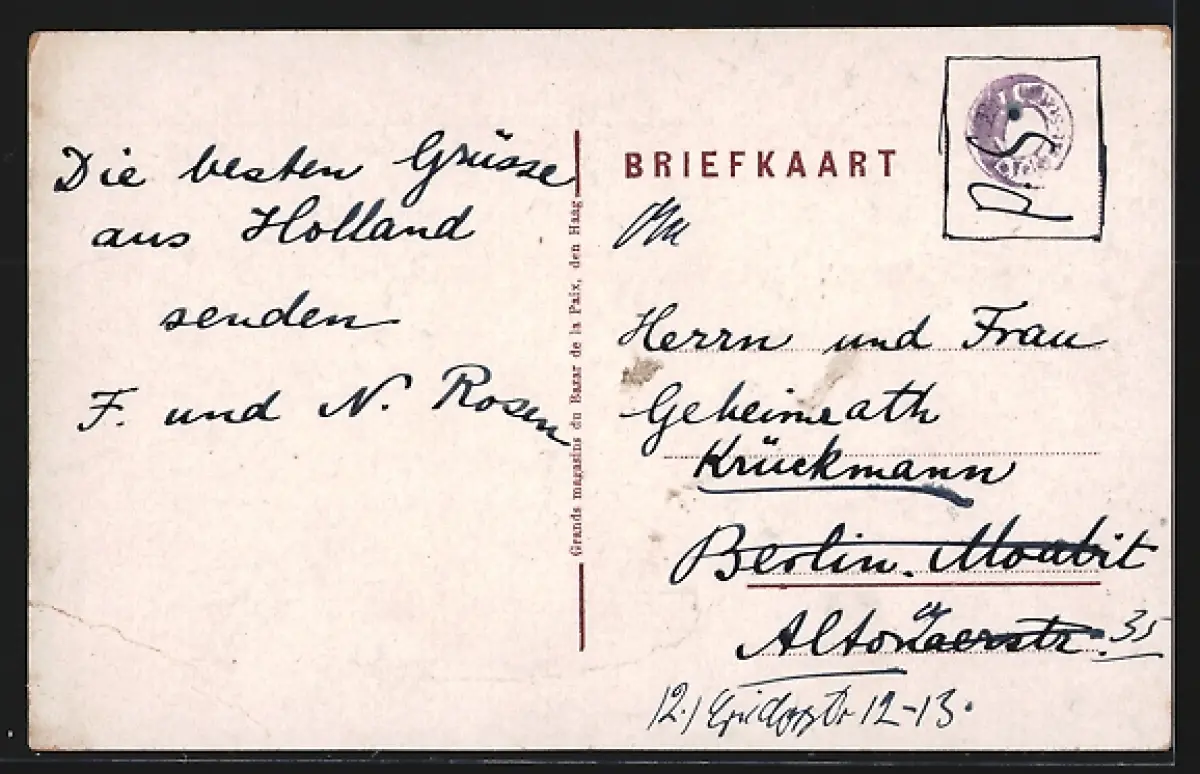 Die besten Grüsse
aus Holland
senden
F. und N. Rosen
Grands magasins du Bazar de la Paix, den Haag.
BRIEFKAART
P. S.
An
Herrn und Frau
Geheimrath
Krückmann
Berlin. Moabit
Altonaerstr. 35
12-13.